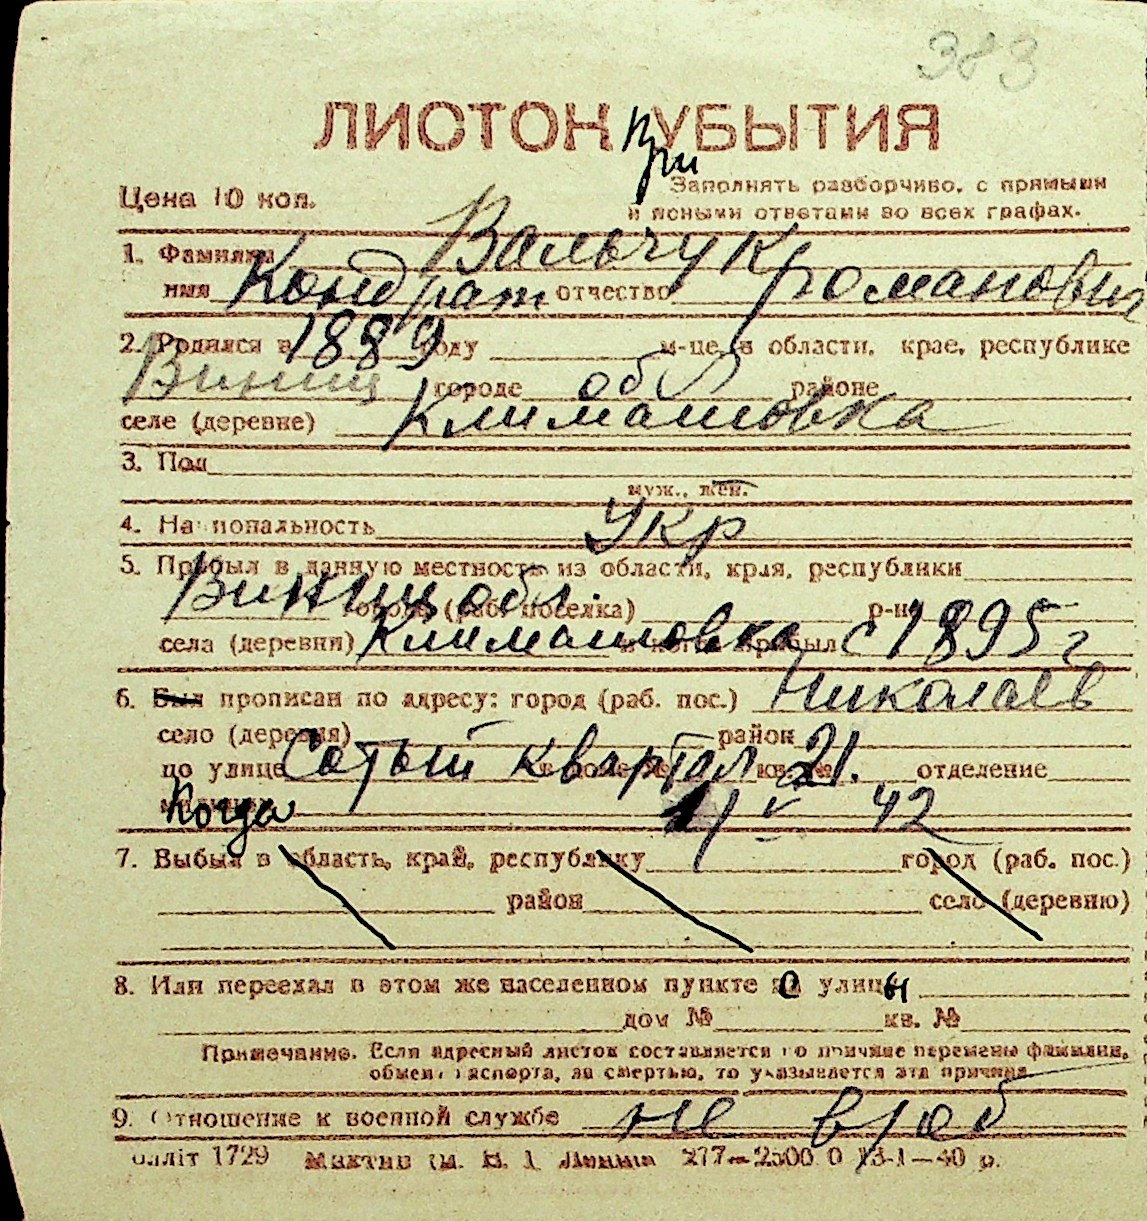 383
ЛИСТОК При УБЫТИЯ
Цена 10 коп. Заполнять разборчиво, с прямыми
и ясными ответами во всех графах.
1. Фамилия Вальчук
имя Кондрат отчество Романович
2. Родился в 1889 году м-це в области, крае, республике
Винниц городе обл районе
селе (деревне) Климашовка
3. Пол
муж., жен.
4. Национальность Укр
5. Прибыл в данную местность из области, края, республики
Винниц обл. города (раб. поселка) р-на
села (деревни) Климашовка и когда прибыл с 1895 г
6. Был прописан по адресу: город (раб. пос.) Николаев
село (деревня) район
по улице Сотый квартал 21. отделение
милиции Когда 1/V 42
7. Выбыл в область, край, республику город (раб. пос.)
район село (деревню)
8. Или переехал в этом же населенном пункте с улицы
дом № кв. №
Примечание. Если адресный листок составляется по причине перемены фамилии,
обмена паспорта, за смертью, то указывается эта причина
9. Отношение к военной службе не в/об
1729 277—2500 0 13-1—40 р.